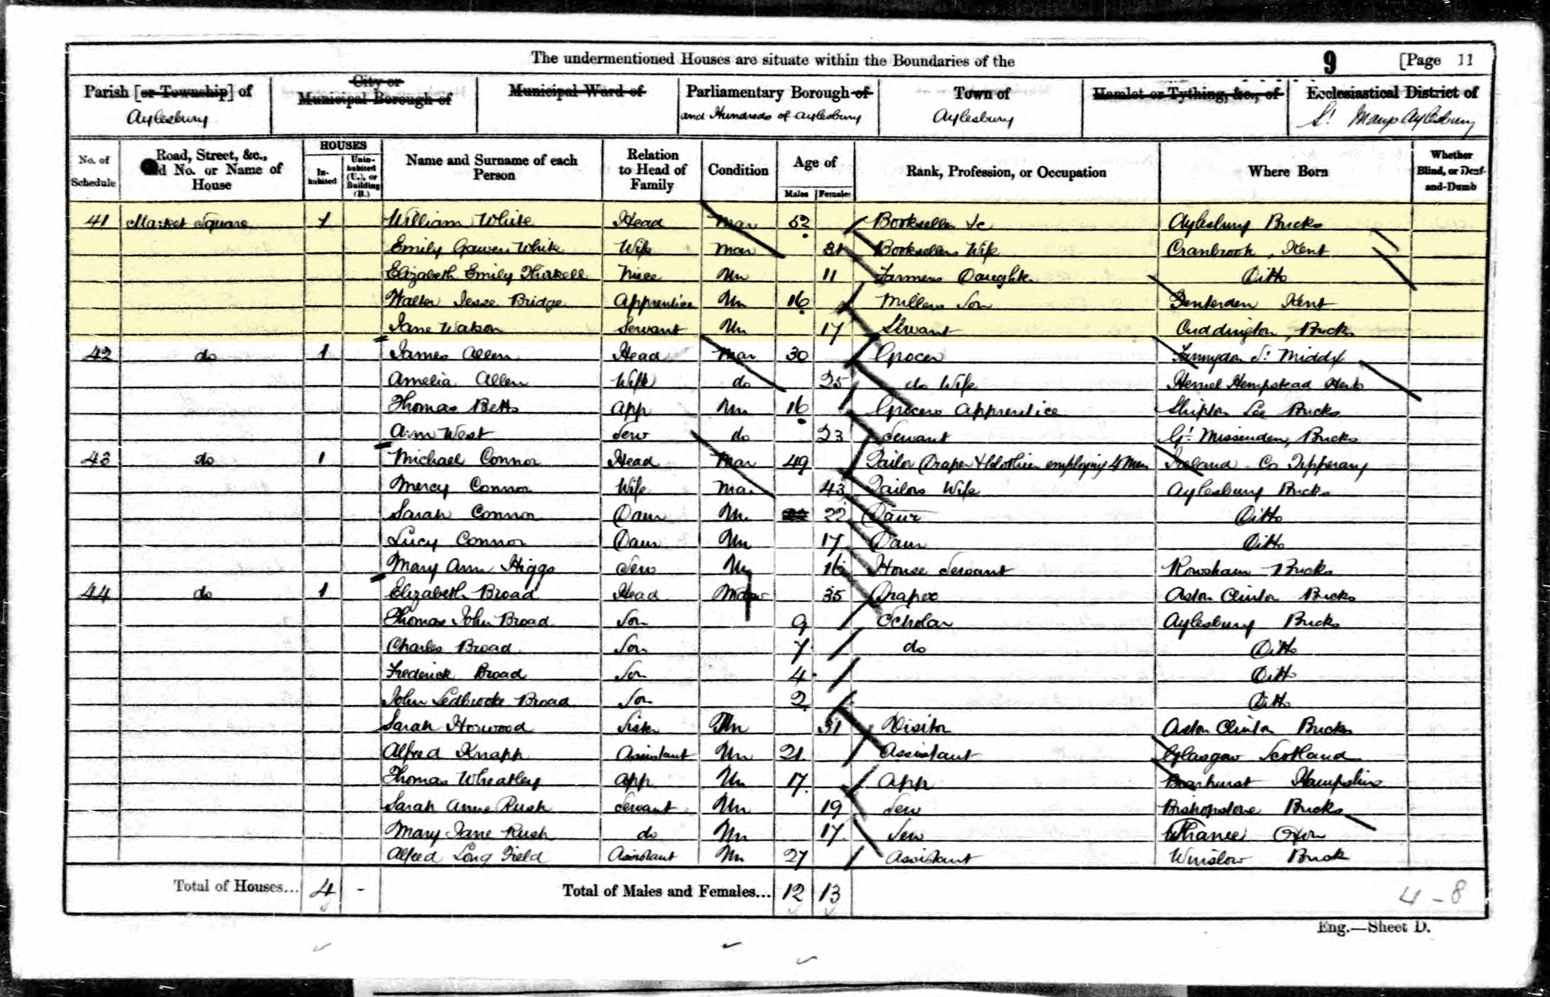 The undermentioned Houses are situate within the Boundaries of the 9 [Page 11
Parish [or Township] of Aylesbury
City or Municipal Borough of
Municipal Ward of
Parliamentary Borough of and Hundreds of Aylesbury
Town of Aylesbury
Hamlet or Tything, &c., of
Ecclesiastical District of St Marys Aylesbury
No. of Schedule
Road, Street, &c., No. or Name of House
HOUSES
In-habited
Unin-habited (U.), or Building (B.)
Name and Surname of each Person
Relation to Head of Family
Condition
Age of
Males
Females
Rank, Profession, or Occupation
Where Born
Whether Blind, or Deaf-and-Dumb
41 Market Square 1 William White Head Mar 52 Bookseller &c Aylesbury Bucks
Emily Gawen White Wife Mar 31 Booksellers Wife Cranbrook, Kent
Elizabeth Emily Niece Un 11 Farmers Daughter Ditto
Walter Jesse Bridge Apprentice Un 16 Millers Son Tenterden Kent
Jane Watson Servant Un 17 Servant Cuddington, Bucks
42 do 1 James Allen Head Mar 30 Grocer Middx
Amelia Allen Wife do 25 do Wife Hemel Hempstead Herts
Thomas Betts App Un 16 Grocers Apprentice Shipton Lee Bucks
Ann West Serv do 23 Servant Gt Missenden, Bucks
43 do 1 Michael Connor Head Mar 49 Tailor Draper & Clothier employing 4 Men Ireland Co Tipperary
Mercy Connor Wife Mar 43 Tailors Wife Aylesbury Bucks
Sarah Connor Daur Un 22 Daur Ditto
Lucy Connor Daur Un 17 Daur Ditto
Mary Ann Higgs Serv Un 16 House Servant Rowsham Bucks
44 do 1 Elizabeth Broad Head Widow 35 Draper Aston Clinton Bucks
Thomas John Broad Son 9 Scholar Aylesbury Bucks
Charles Broad Son 7 do Ditto
Frederick Broad Son 4 Ditto
John Sedbrooke Broad Son 2 Ditto
Sarah Horwood Sister Un 31 Visitor Aston Clinton Bucks
Alfred Knapp Assistant Un 21 Assistant Glasgow Scotland
Thomas Wheatley App Un 17 App Hampshire
Sarah Anne Rush Servant Un 19 Serv Bishopstone Bucks
Mary Jane Rush do Un 17 Serv Oxon
Alfred Long Field Assistant Un 27 Assistant Winslow Buck
Total of Houses... 4 - Total of Males and Females... 12 13
4 - 8
Eng.—Sheet D.